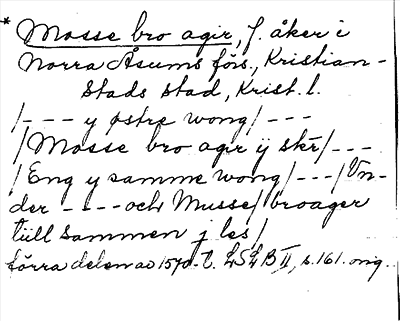 * Mosse bro agir, f. åker i
Norra Åsums förs., Kristian-
stads stad, Krist. l.
/--- y østre wong/---
/Mosse bro agir ÿ skr̄/---
/Eng y samme wong/---/Vn-
der ---- och Musse/broager
tiill sammen j les/
förra delen av 1570-t. LSLB II, s. 161. orig.